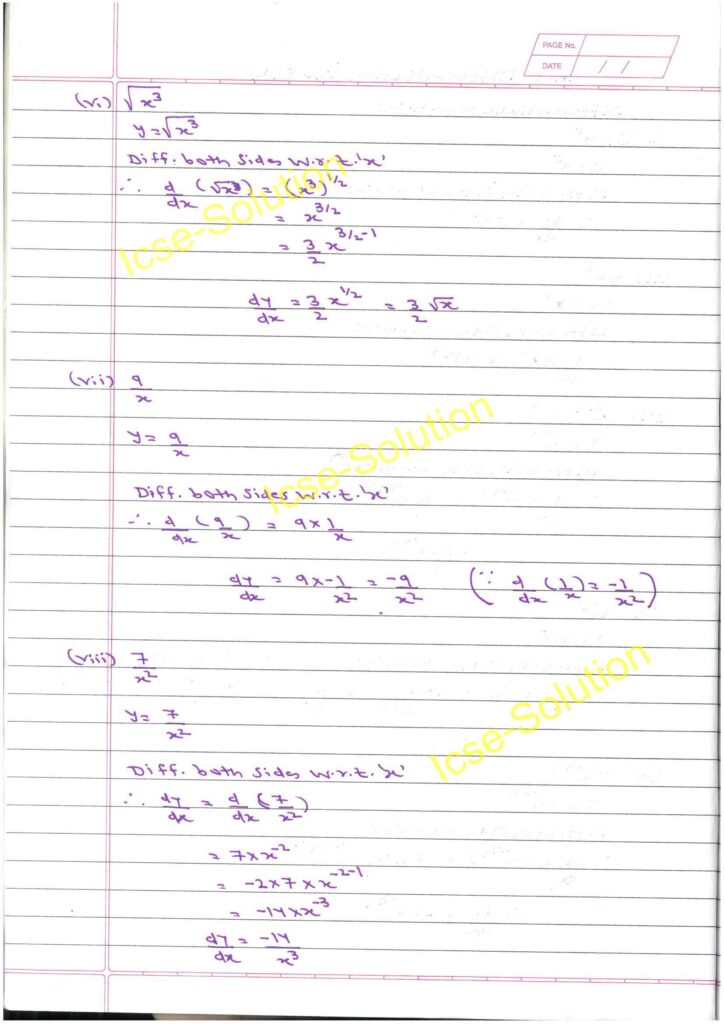 PAGE No.
DATE / /
(vi) √x³
y = √x³
Diff. both sides w.r.t. 'x'
∴ d/dx (√x³) = (x³)^1/2
= x^3/2
= 3/2 x^3/2-1
dy/dx = 3/2 x^1/2 = 3/2 √x
Icse-Solution
(vii) 9/x
y = 9/x
Icse-Solution
Diff. both sides w.r.t. 'x'
∴ d/dx (9/x) = 9 × 1/x
dy/dx = 9 × -1/x² = -9/x² (∵ d/dx (1/x) = -1/x²)
(viii) 7/x²
y = 7/x²
Icse-Solution
Diff. both sides w.r.t. 'x'
∴ dy/dx = d/dx (7/x²)
= 7 × x^-2
= -2 × 7 × x^-2-1
= -14 × x^-3
dy/dx = -14/x³